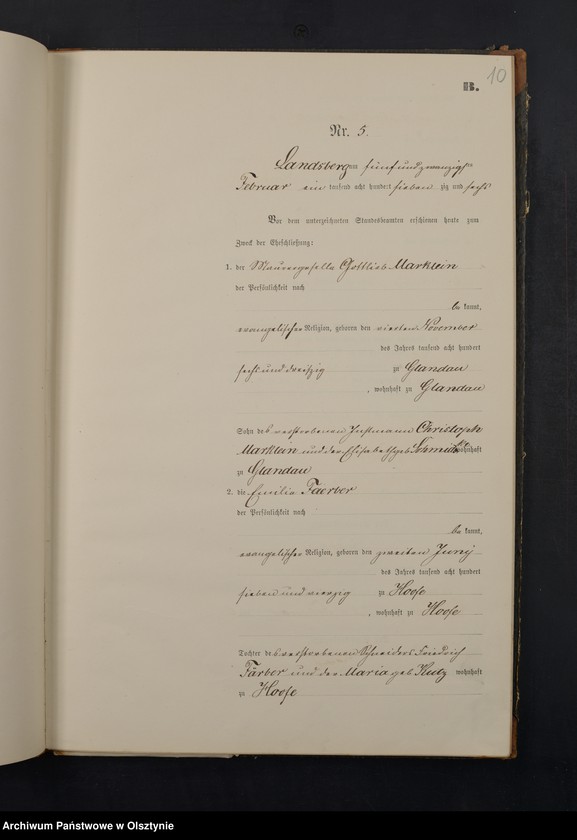 10
B.
Nr. 5.
Landsberg am fünfundzwanzigsten
Februar ein tausend acht hundert sieben zig und sechs
Vor dem unterzeichneten Standesbeamten erschienen heute zum
Zweck der Eheschließung:
1. der Maurergeselle Gottlieb Marklein
der Persönlichkeit nach
be kannt,
evangelischer Religion, geboren den vierten November
des Jahres tausend acht hundert
sechs und dreißig zu Glandau
, wohnhaft zu Glandau
Sohn des verstorbenen Instmann Christoph
Marklein und der Elisabeth geb. Schmidt wohnhaft
zu Glandau
2. die Emilie Faerber
der Persönlichkeit nach
be kannt,
evangelischer Religion, geboren den zweiten Junij
des Jahres tausend acht hundert
sieben und vierzig zu Hoofe
, wohnhaft zu Hoofe
Tochter des verstorbenen Schneiders Friedrich
Färber und der Maria geb. Klutz wohnhaft
zu Hoofe
Archiwum Państwowe w Olsztynie